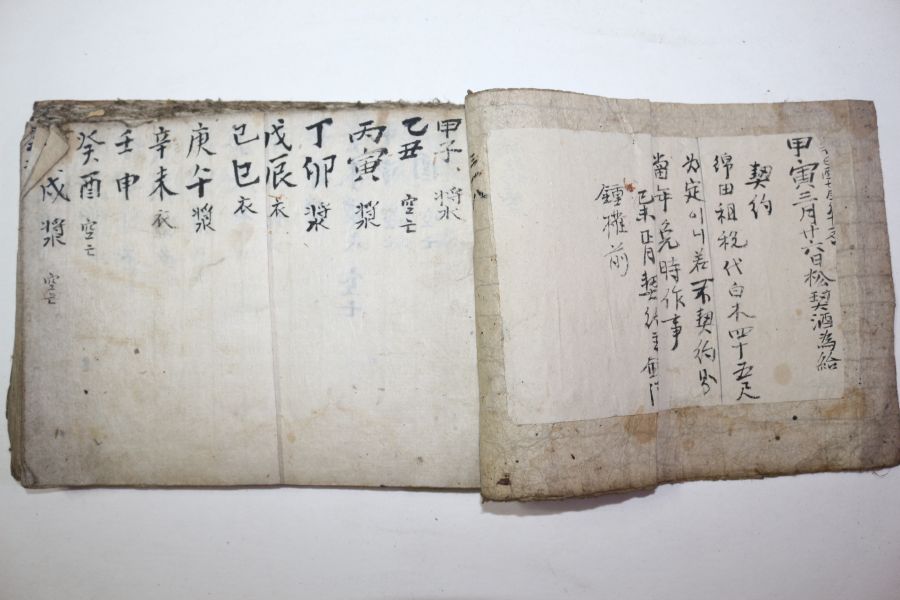 甲寅三月廿六日松契酒為給
契約
綿田租稅代白木四十五尺
为定이니若不契約
當年 時作事
己未正月契
鍾 前
甲子 漿
乙丑 空亡
丙寅 漿
丁卯 漿
戊辰 衣
己巳 衣
庚午 漿
辛未 衣
壬申
癸酉 空亡
戌 漿 空亡